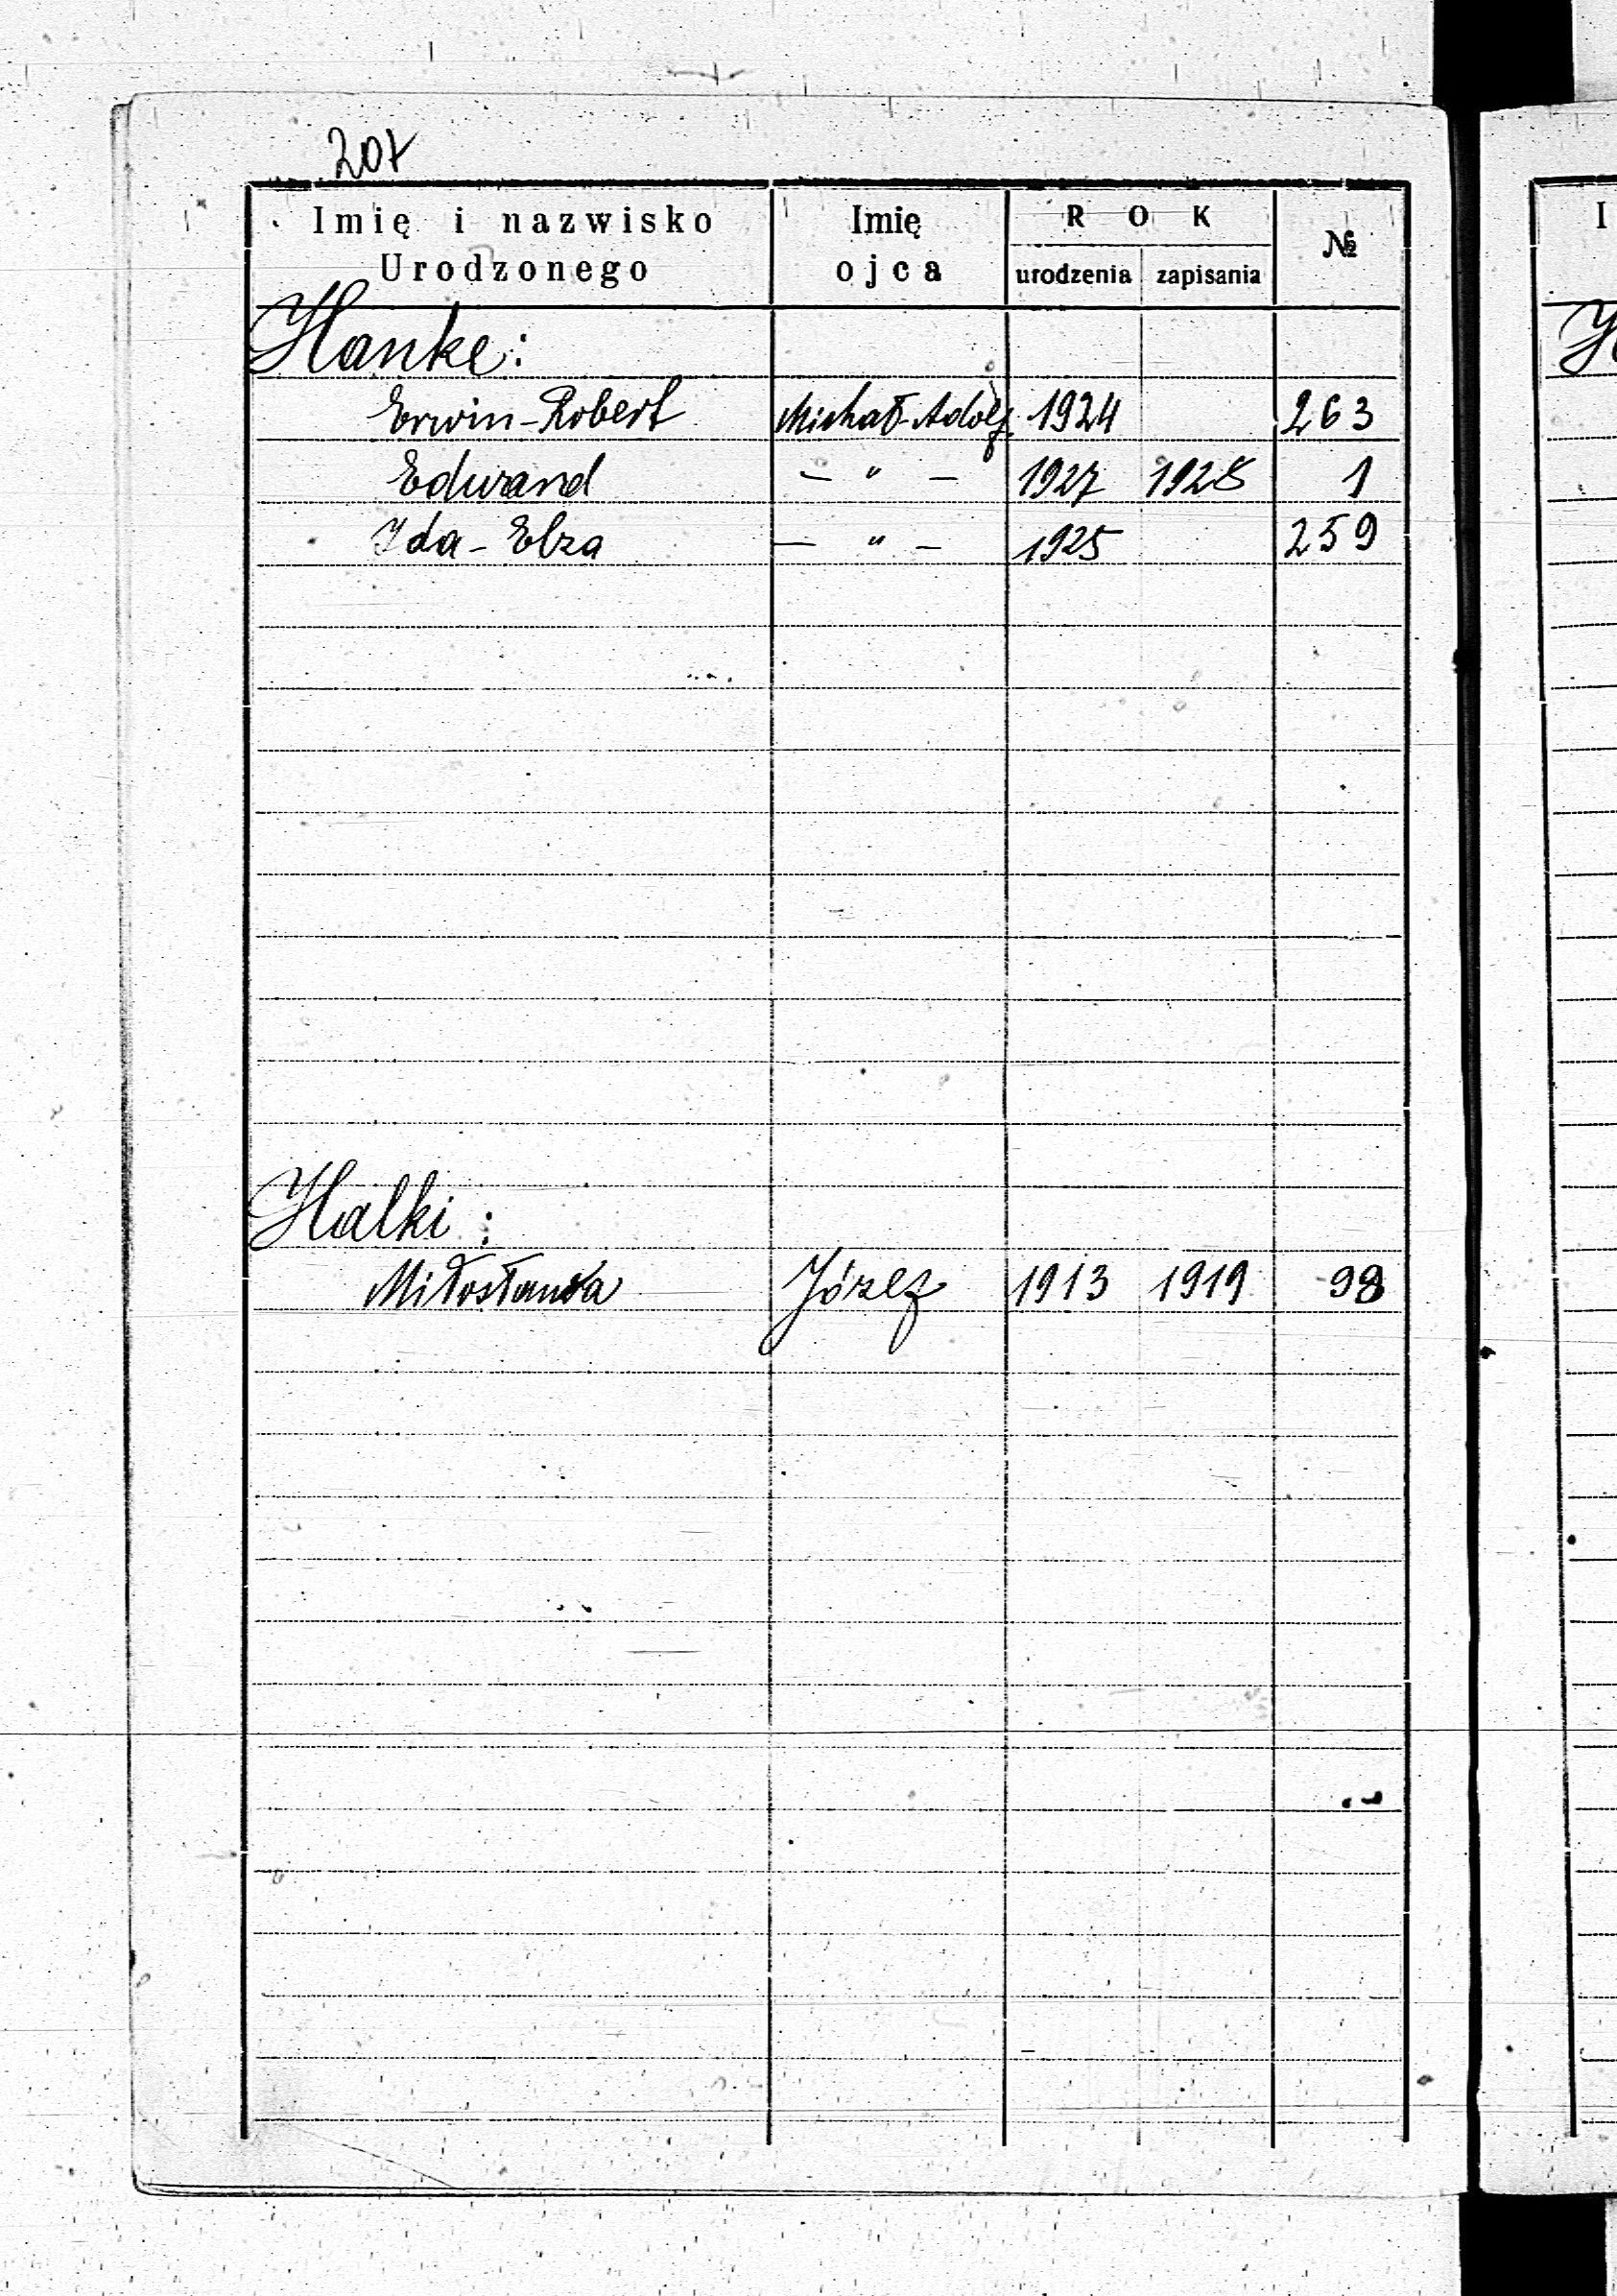 207
Imię i nazwisko Urodzonego Imię ojca ROK urodzenia zapisania №
Hanke:
Erwin-Robert Michał-Adolf 1924 263
Edward — " — 1927 1928 1
Ida-Elza — " — 1925 259
Halki:
Miłosława Józef 1913 1919 98